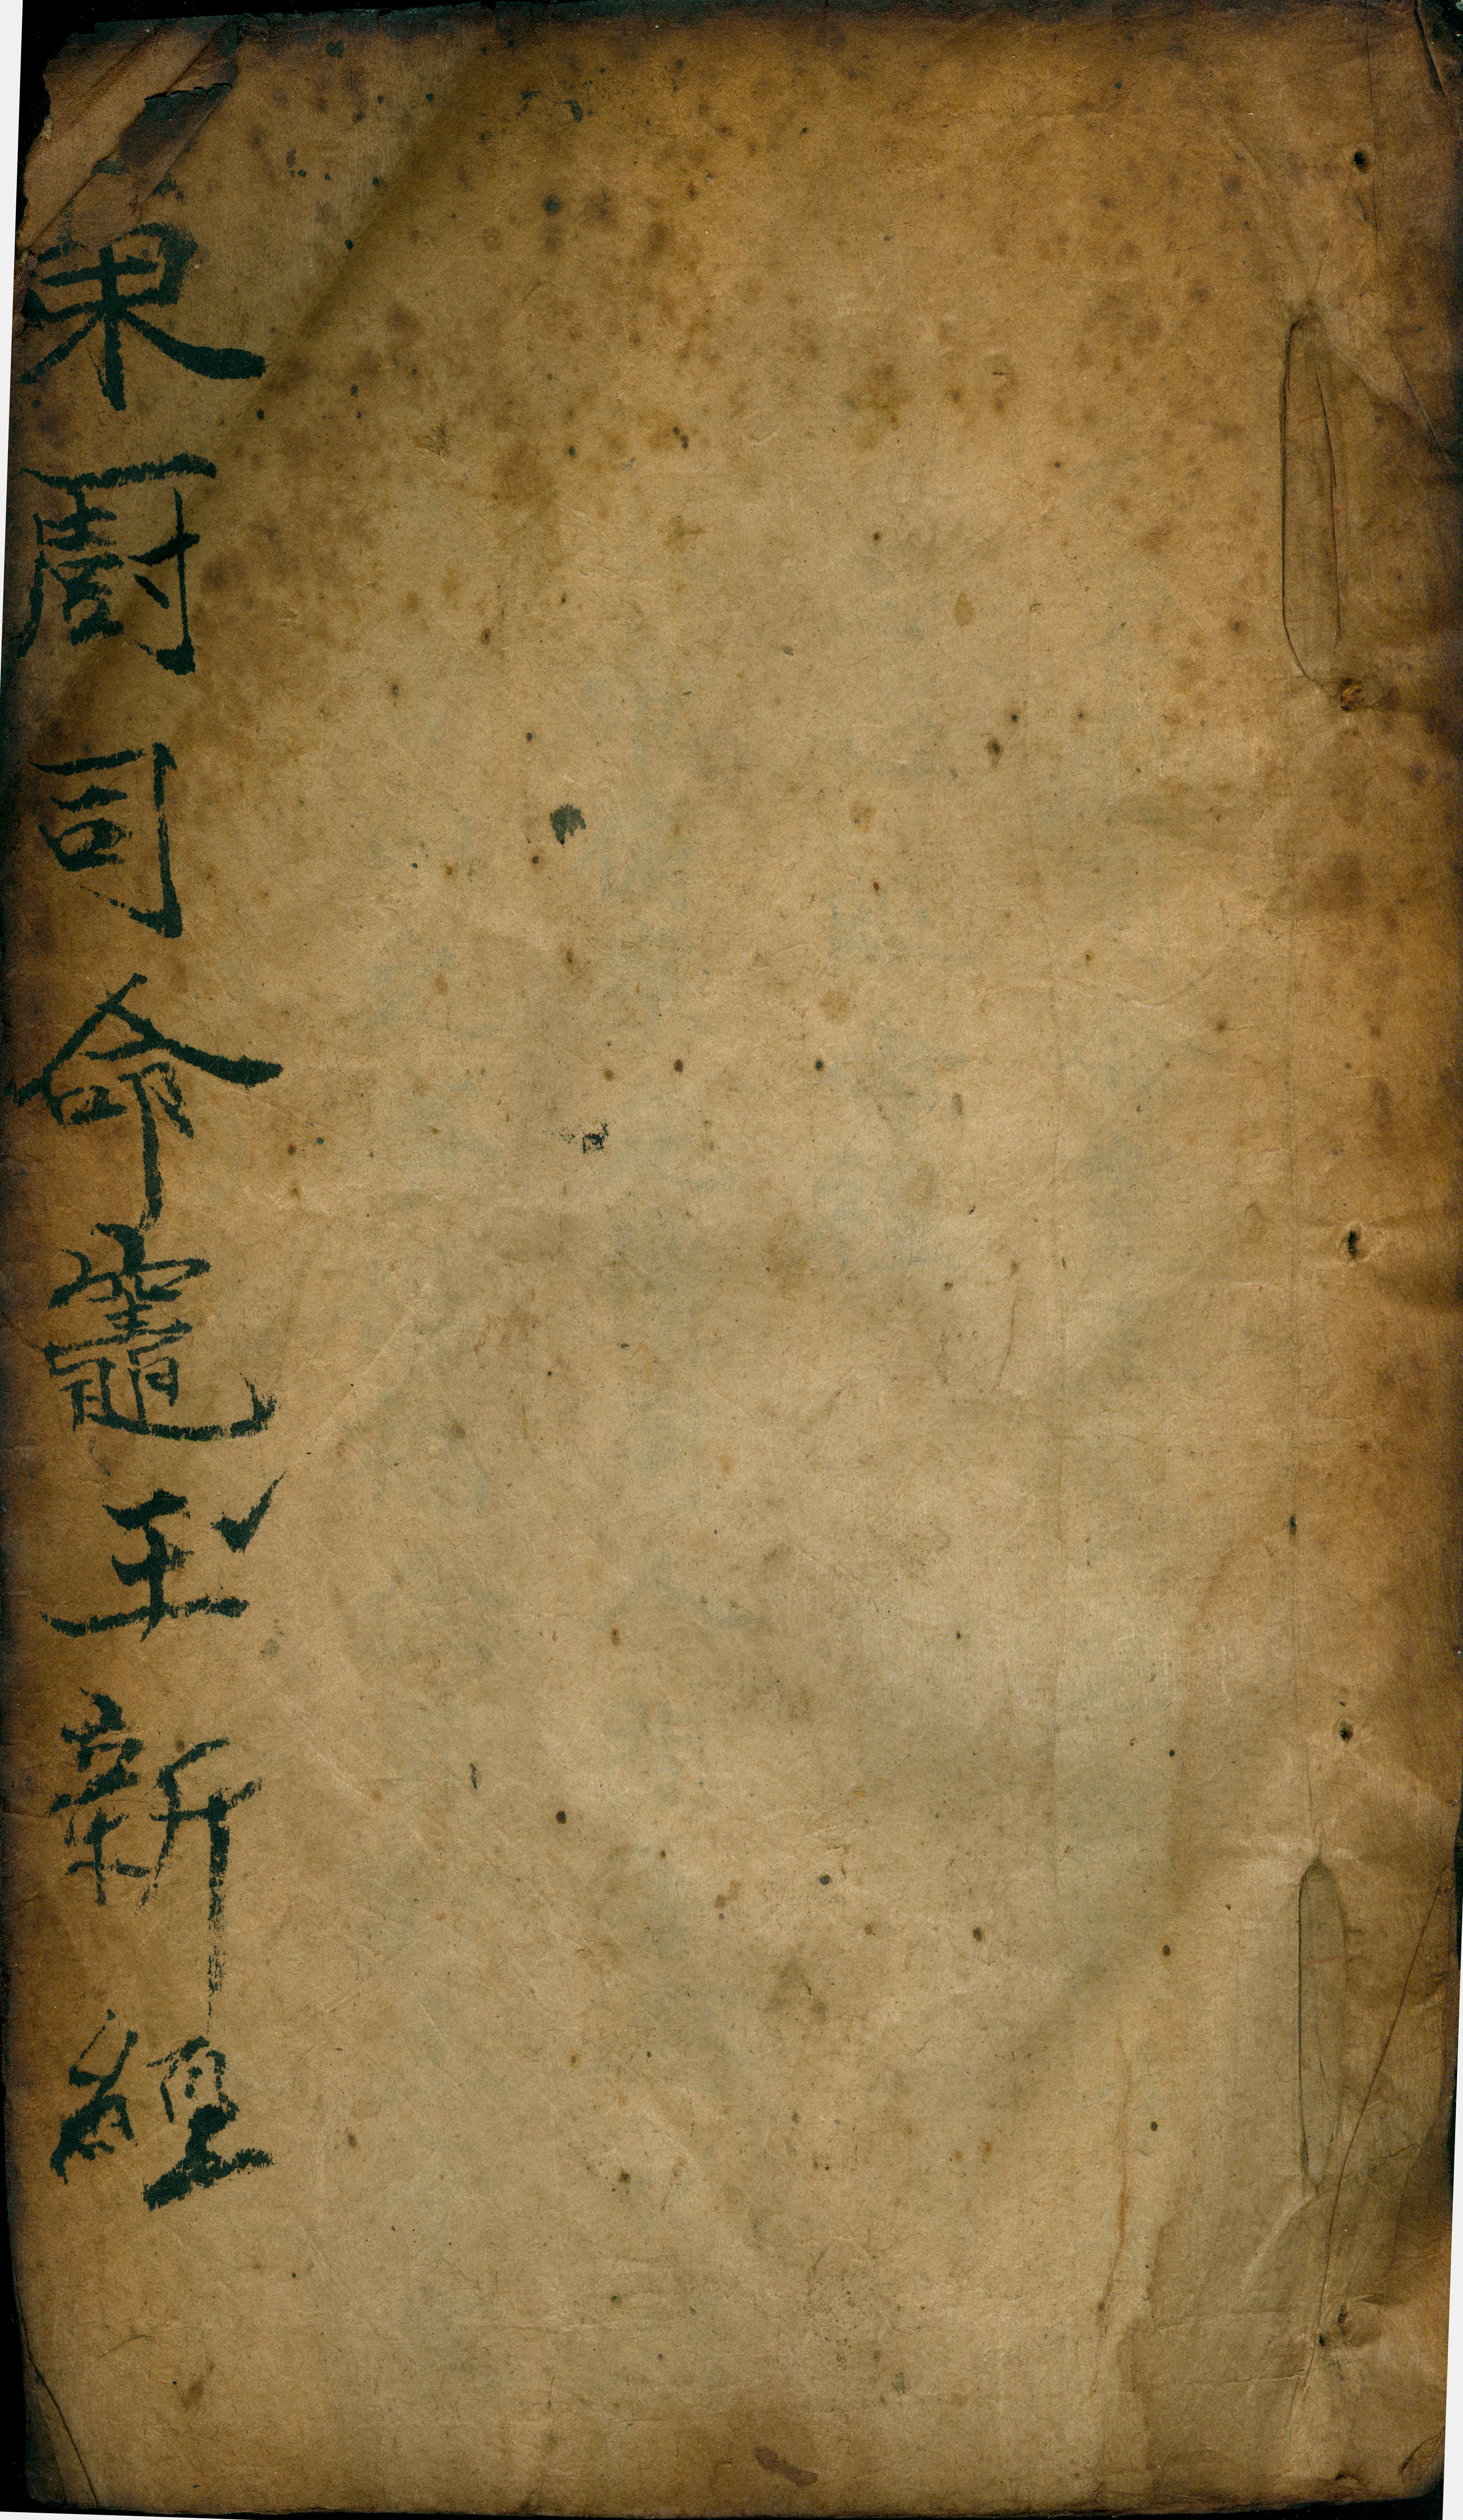 東厨司命竈王新經